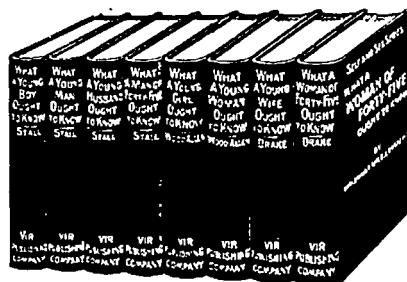 WHAT
A YOUNG
BOY
OUGHT
TO KNOW
STALL
VIR
PUBLISHING
COMPANY
WHAT
A YOUNG
MAN
OUGHT
TO KNOW
STALL
VIR
PUBLISHING
COMPANY
WHAT
A YOUNG
HUSBAND
OUGHT
TO KNOW
STALL
VIR
PUBLISHING
COMPANY
WHAT
A MAN OF
FORTY-FIVE
OUGHT
TO KNOW
STALL
VIR
PUBLISHING
COMPANY
WHAT
A YOUNG
GIRL
OUGHT
TO KNOW
WOOD-ALLEN
VIR
PUBLISHING
COMPANY
WHAT
A YOUNG
WOMAN
OUGHT
TO KNOW
WOOD-ALLEN
VIR
PUBLISHING
COMPANY
WHAT
A YOUNG
WIFE
OUGHT
TO KNOW
DRAKE
VIR
PUBLISHING
COMPANY
WHAT A
WOMAN OF
FORTY-FIVE
OUGHT
TO KNOW
DRAKE
VIR
PUBLISHING
COMPANY
SELF AND SEX SERIES
WHAT A
WOMAN OF
FORTY-FIVE
OUGHT TO KNOW
BY